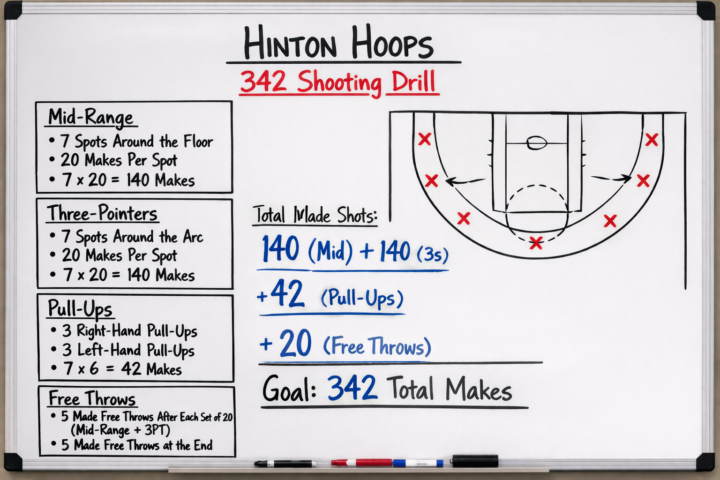 HINTON HOOPS
342 Shooting Drill
Mid-Range
• 7 Spots Around the Floor
• 20 Makes Per Spot
• 7 x 20 = 140 Makes
Three-Pointers
• 7 Spots Around the Arc
• 20 Makes Per Spot
• 7 x 20 = 140 Makes
Pull-Ups
• 3 Right-Hand Pull-Ups
• 3 Left-Hand Pull-Ups
• 7 x 6 = 42 Makes
Free Throws
• 5 Made Free Throws After Each Set of 20
(Mid-Range + 3PT)
• 5 Made Free Throws at the End
Total Made Shots:
140 (Mid) + 140 (3s)
+ 42 (Pull-Ups)
+ 20 (Free Throws)
Goal: 342 Total Makes